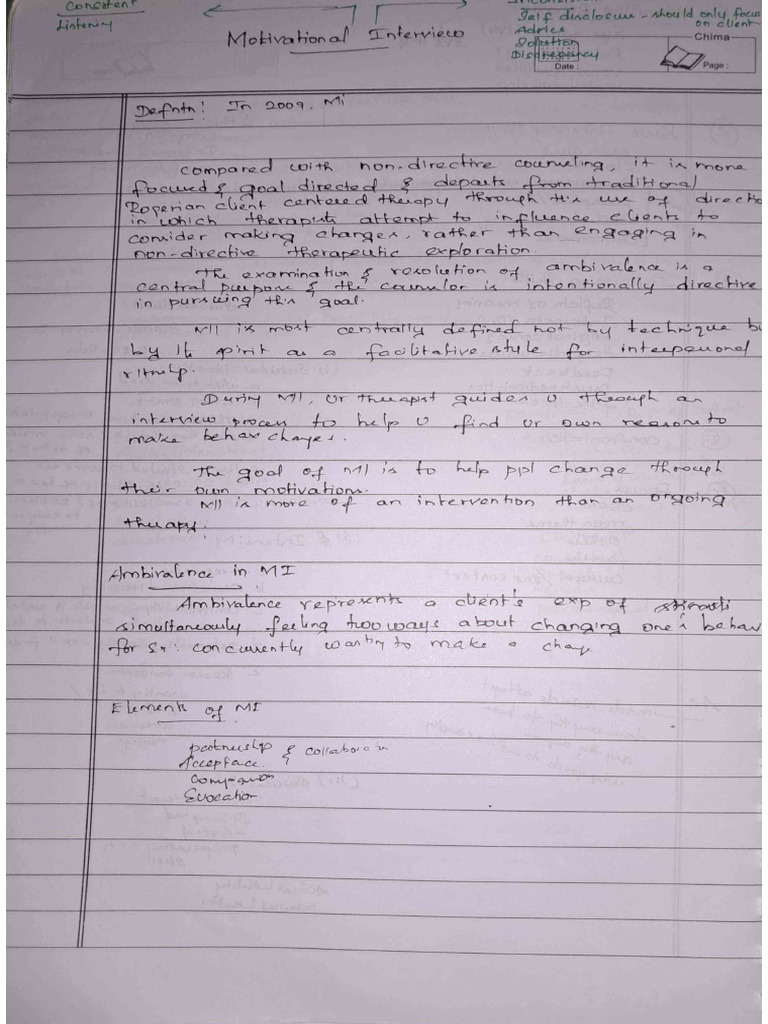 Consistent
Listening
Motivational Interview
Self disclosure - should only focus
on client
Advice
Solution
Discrepancy
Chima
Date :
Page :
Defntn: In 2009, Mi
compared with non-directive counseling, it is more
focused & goal directed & departs from traditional
Rogerian client centered therapy through this use of directio
in which therapists attempt to influence clients to
consider making changes, rather than engaging in
non-directive therapeutic exploration.
The examination & resolution of ambivalence is a
central purpose & the counselor is intentionally directive
in pursuing this goal.
MI is most centrally defined not by technique bu
by its spirit as a facilitative style for interpersonal
rltnshp.
During MI, ur therapist guides u through an
interview process to help u find ur own reasons to
make behav changes.
The goal of MI is to help ppl change through
their own motivations.
MI is more of an intervention than an ongoing
therapy.
Ambivalence in MI
Ambivalence represents a client's exp of
simultaneously feeling two ways about changing one's behav
for concurrently wanting to make a change
Elements of MI
partnership & collaboration
Acceptance &
Compassion
Evocation